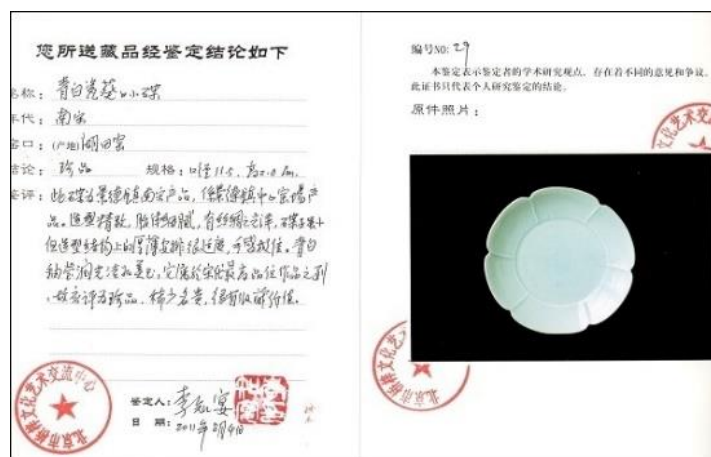 您所送藏品经鉴定结论如下
名称：青白瓷葵口小碟
年代：南宋
窑口：(产地)湖田窑
结论：珍品 规格：口径11.5，高2.0cm.
鉴评：此碟为景德镇南宋产品，系景德镇中心窑场产
品。造型精致，胎体细腻，有丝绸之光泽，碟子虽小
但造型结构上的厚薄安排很适度，手感极佳。青白
釉莹润光洁
故应评为珍品，稀少名贵，很有收藏价值。
鉴定人：李知宴
日期：2011年2月4日
北京市桥梓文化艺术交流中心
编号NO: 29
本鉴定表示鉴定者的学术研究观点，存在着不同的意见和争议。
此证书只代表个人研究鉴定的结论。
原件照片：